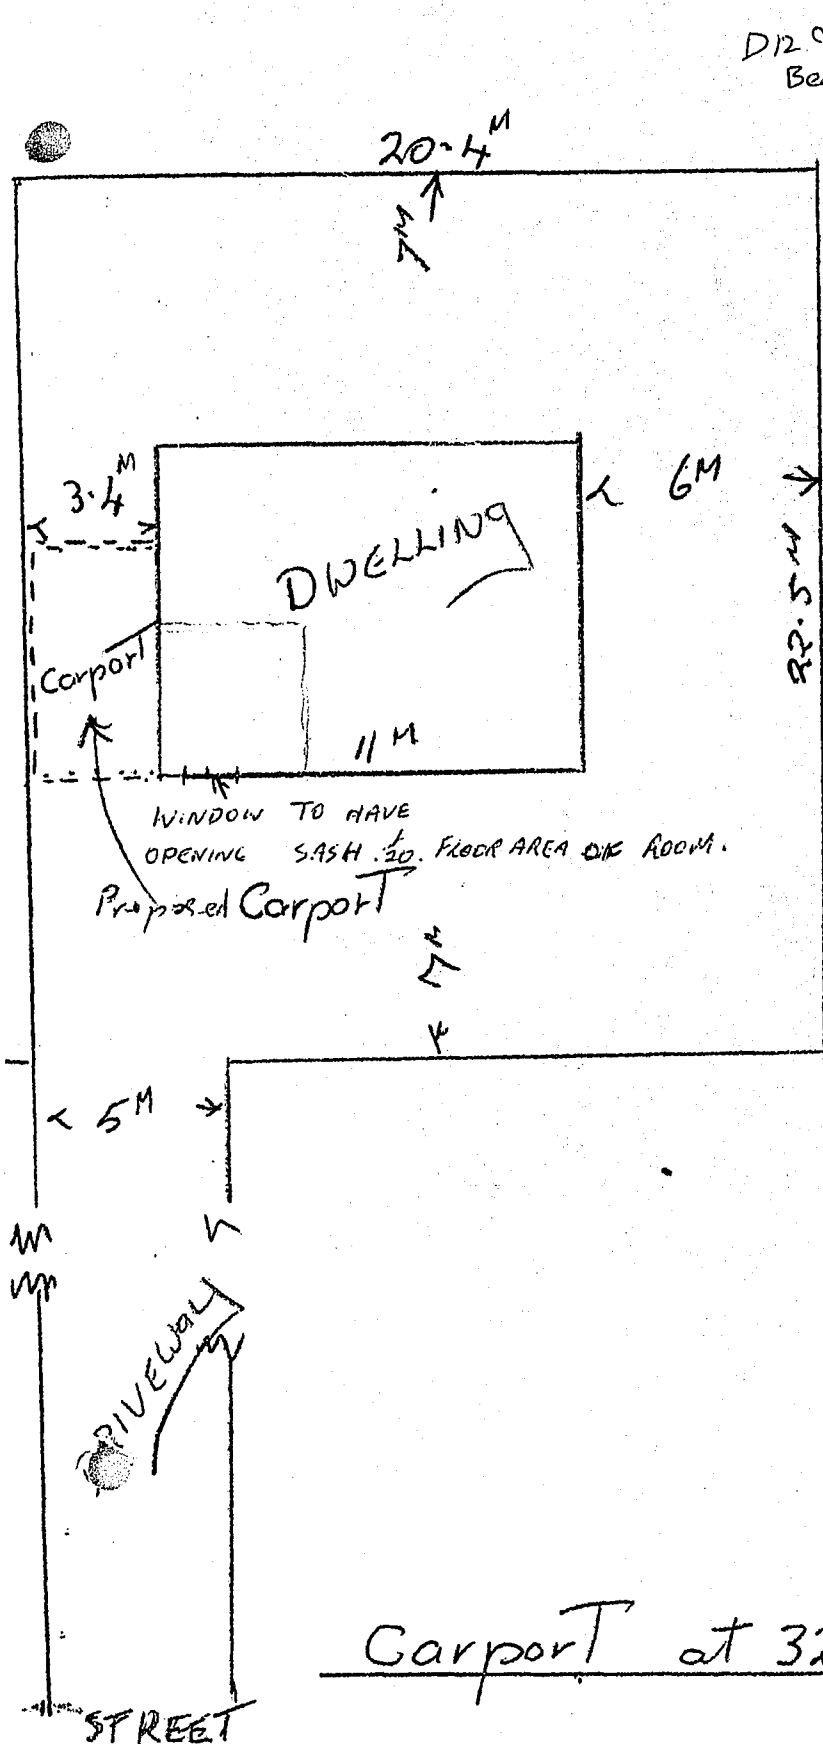 D12
20.4M
7M
3.4M
6M
DWELLING
22.5M
Carport
11M
WINDOW TO HAVE
OPENING SASH 1/20. FLOOR AREA OF ROOM.
Proposed Carport
7M
5M
DRIVEWAY
Carport at 32
STREET